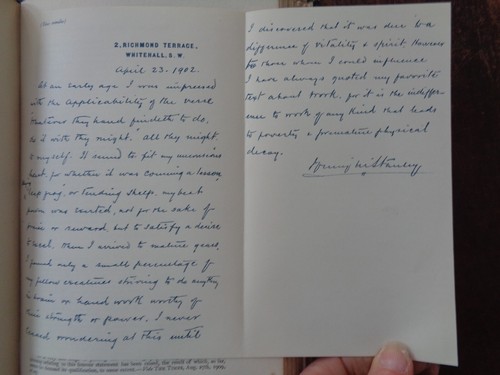 2, RICHMOND TERRACE,
WHITEHALL, S.W.
April 23. 1902.
At an early age I was impressed
with the applicability of the verse
Whatever thy hand findeth to do,
do it with thy might." All thy might,
to myself. It seemed to fit my unconscious
for whether it was conning a lesson,
leap frog, or tending sheep, my best
power was exerted, not for the sake of
praise or reward, but to satisfy a desire
to excel. When I arrived to mature years,
I found only a small percentage of
my fellow creatures striving to do anything
in brain or hand work worthy of
their strength or power. I never
ceased wondering at this until
I discovered that it was due to a
difference of vitality & spirit. However
to those whom I could influence
I have always quoted my favorite
text about work. for it is the indiffer-
ence to work of any kind that leads
to poverty & premature physical
decay.
Henry M Stanley
relating to this historic statement has been raised, the result of which, so far,
need is its qualification, in some sort.—Vide THE TIMES, Aug. 27th, 1909,